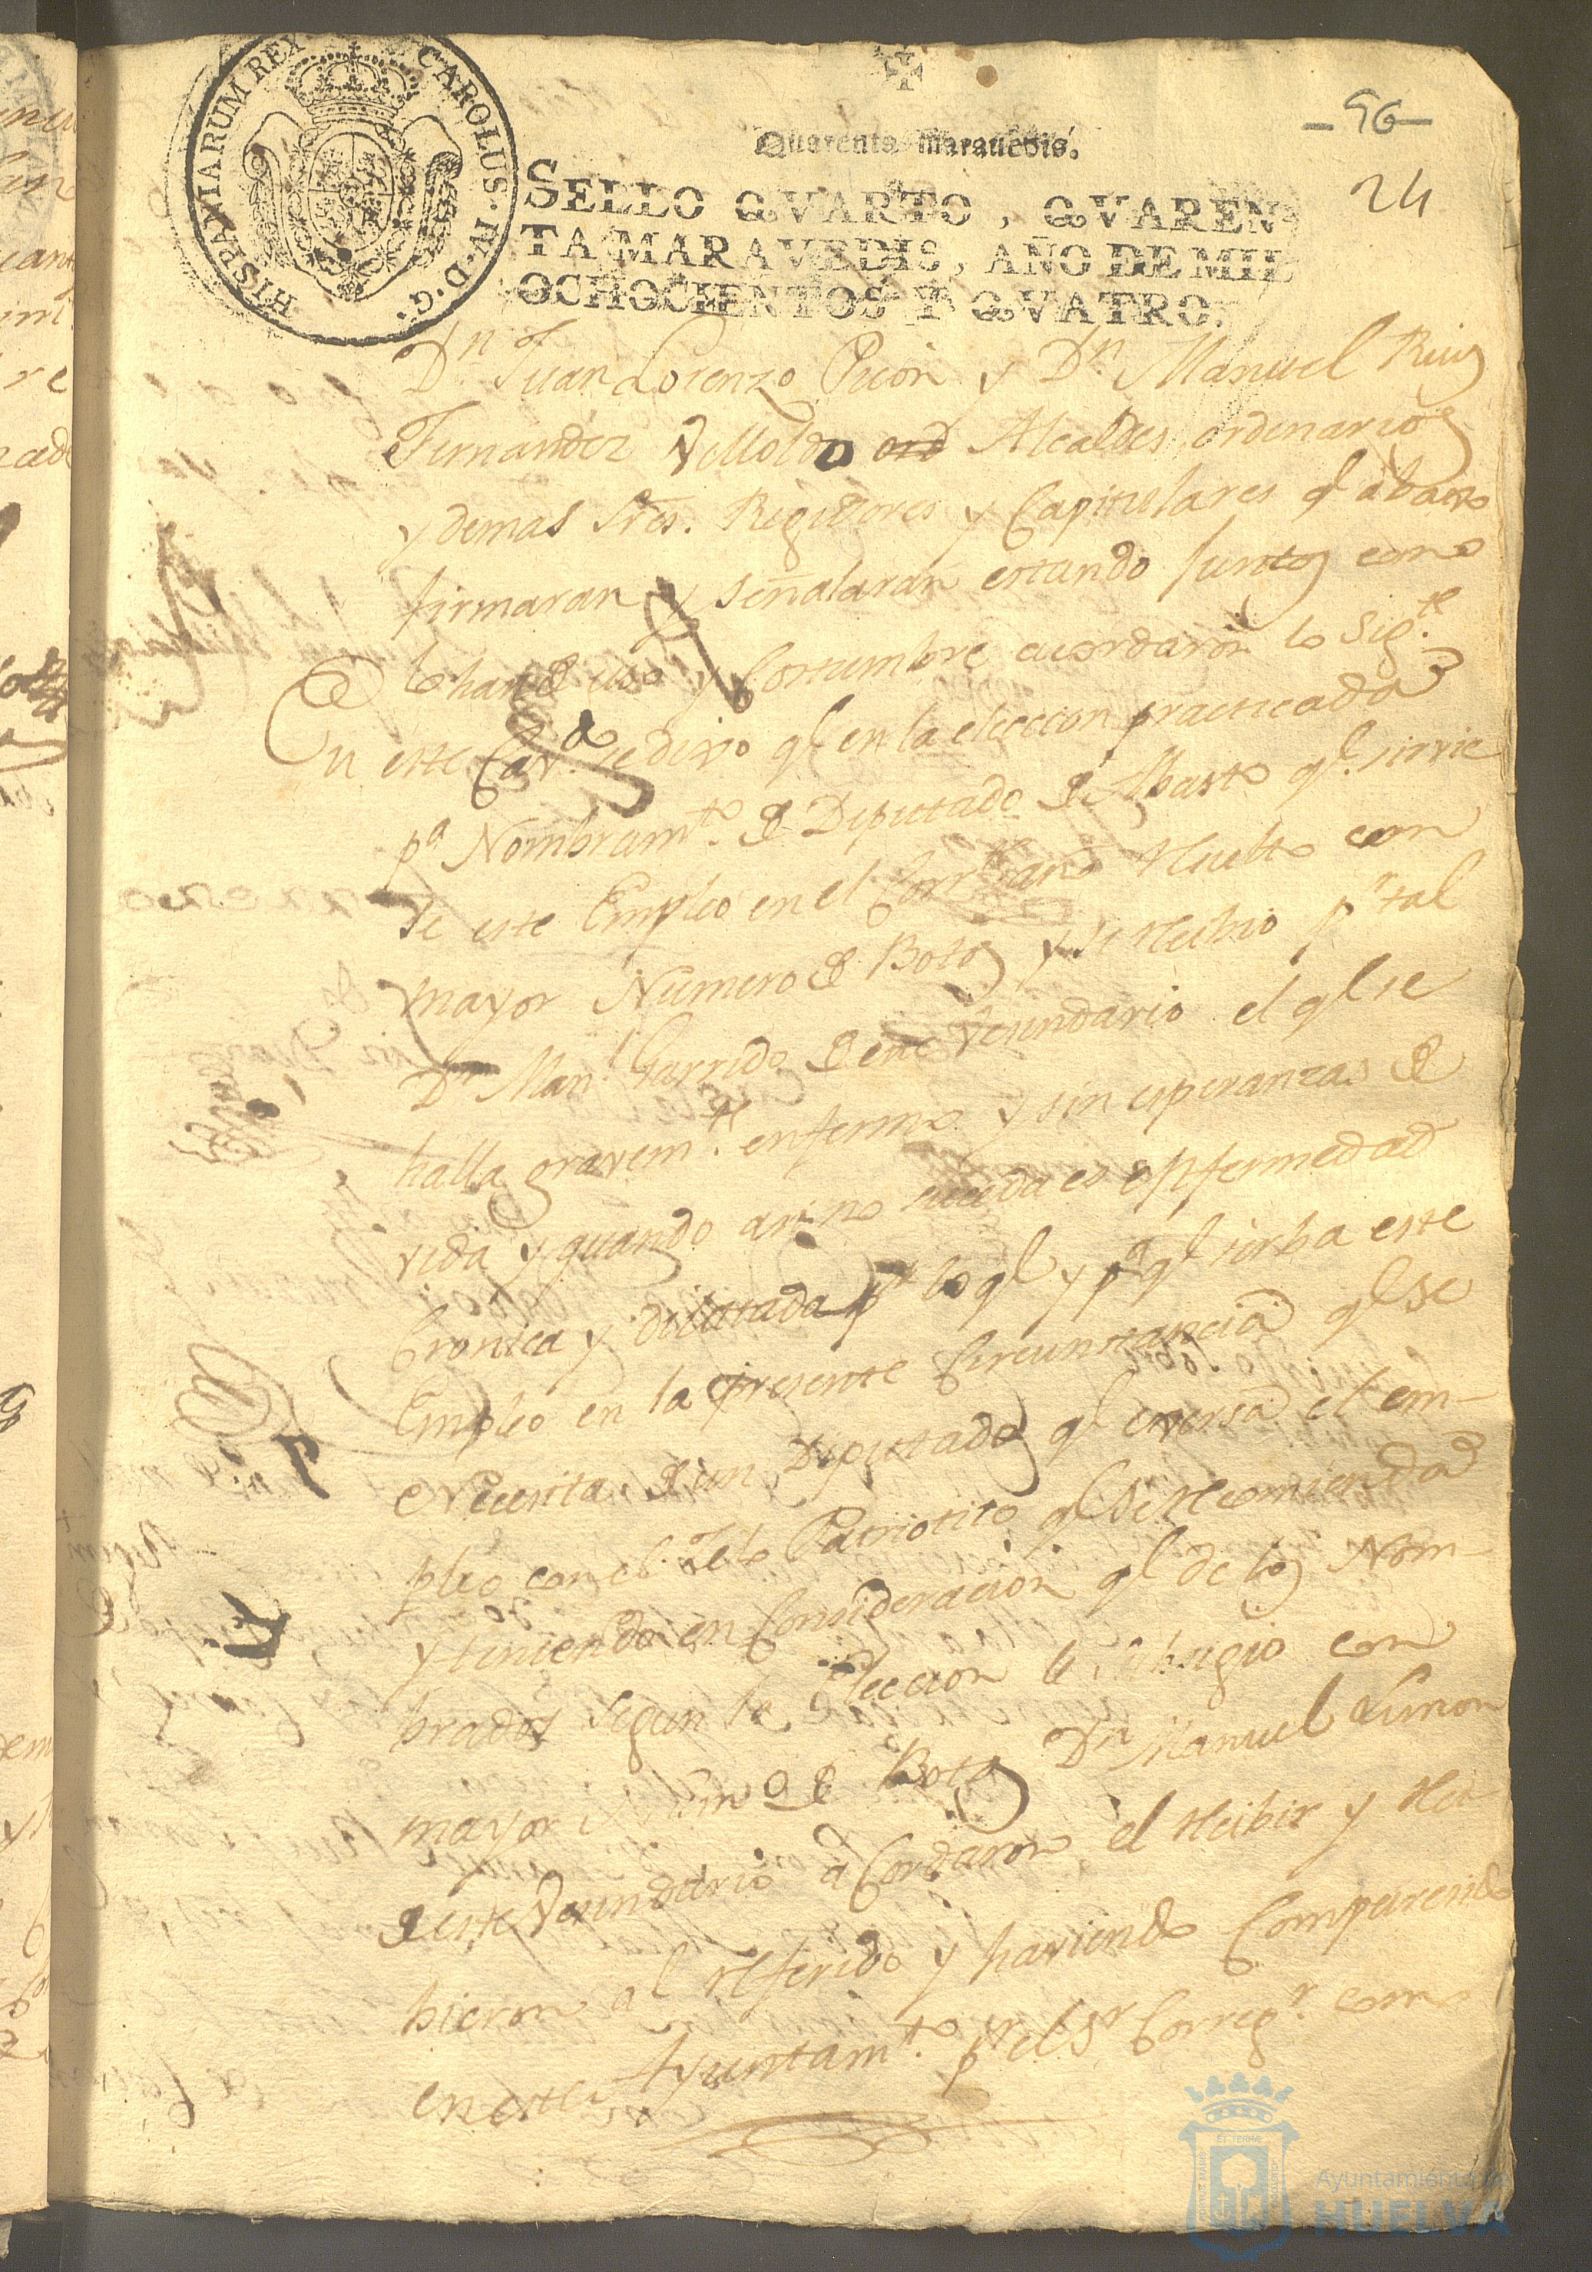 HISPANIARUM REX CAROLUS · IV · D · G ·
Quarenta maravedis.
- 96 -
24
SELLO QVARTO, QVAREN
TA MARAVEDIS, AÑO DE MIL
OCHOCIENTOS Y QVATRO.
Dn Juan Lorenzo Picon y Dn Manuel Ruiz
Fernandez Villoldo Alcaldes ordinarios
y demas Sres. Regidores y Capitulares ql abaxo
firmaran y señalaran estando Juntos como
lo han de uso y Costumbre acordaron lo Sigte
En este Cavdo se dixo ql en la eleccion practicada
pa Nombramto de Diputado de Abasto ql sirvie
se este Empleo en el Corrte año con
mayor Numero de Botos y se pr tal
Dn Manl Garrido de este Vecundario el ql se
halla gravemte enfermo y sin esperanza de
vida y quando asi no suceda es enfermedad
Cronica y dilatada pr lo ql y pa ql sirba este
Empleo en la presente Circunstancia ql se
Necesita de un Diputado ql exersa el em-
pleo con el Zelo Patriotico ql se recomienda
y teniendo en Consideracion ql de los Nom-
brados segun la Eleccion con
mayor Numo de Botos Dn Manuel Limon
de este Vecundario aCordaron el recibir y reci
bieron al referido y haviendo Comparecido
en este Ayuntamto pr el Sr Corregr como
Ayuntamiento de
HUELVA